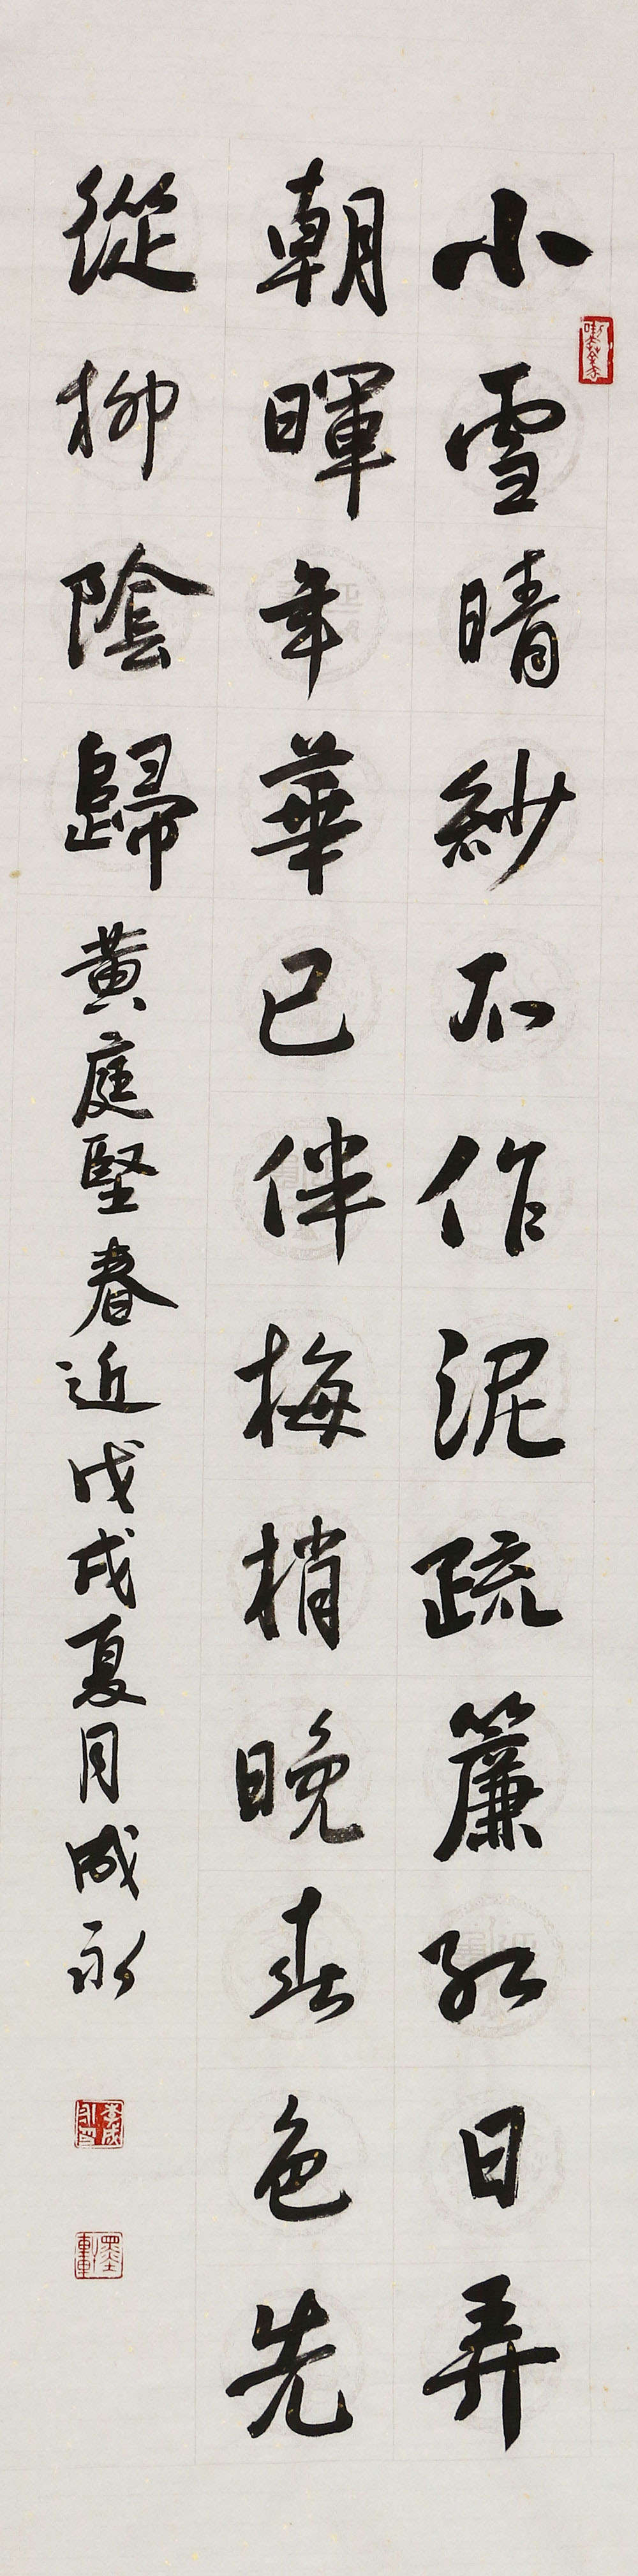 小雪晴紗不作泥疏簾紅日弄
朝暉年華已伴梅梢晚春色先
從柳陰歸黃庭堅春近戊戌夏月成永
李成永印